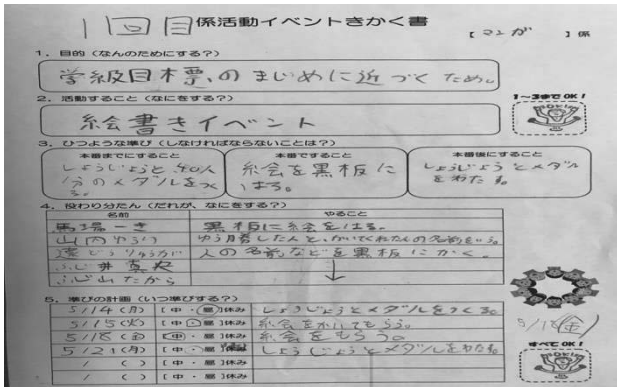 1回目 係活動イベントきかく書
【マンガ】係
1. 目的(なんのためにする?)
学級目標、のまじめに近づくため。
2. 活動すること(なにをする?)
絵書きイベント
1~3までOK!
3. ひつような準び(しなければならないことは?)
本番までにすること
しょうじょうと、40人
分のメダルをつく
る。
本番ですること
絵を黒板に
はる。
本番後にすること
しょうじょうとメダル
をわたす。
4. 役わり分たん(だれが、なにをする?)
名前 やること
馬場一き 黒板に絵をはる。
山内ゆうり ゆう勝した人と、かいてくれた人の名前をいう。
人の名前などを黒板にかく。
ふじ井真央
5. 準びの計画(いつ準びする?)
5/14(月) [中・昼]休み しょうじょうとメダルをつくる。
5/15(火) [中・昼]休み 絵をかいてもらう。
5/18(金) [中・昼]休み 絵をもらう。
5/21(月) [中・昼]休み しょうじょうとメダルをわたす。
/ ( ) [中・昼]休み
/ ( ) [中・昼]休み
5/18(金)
すべてOK!